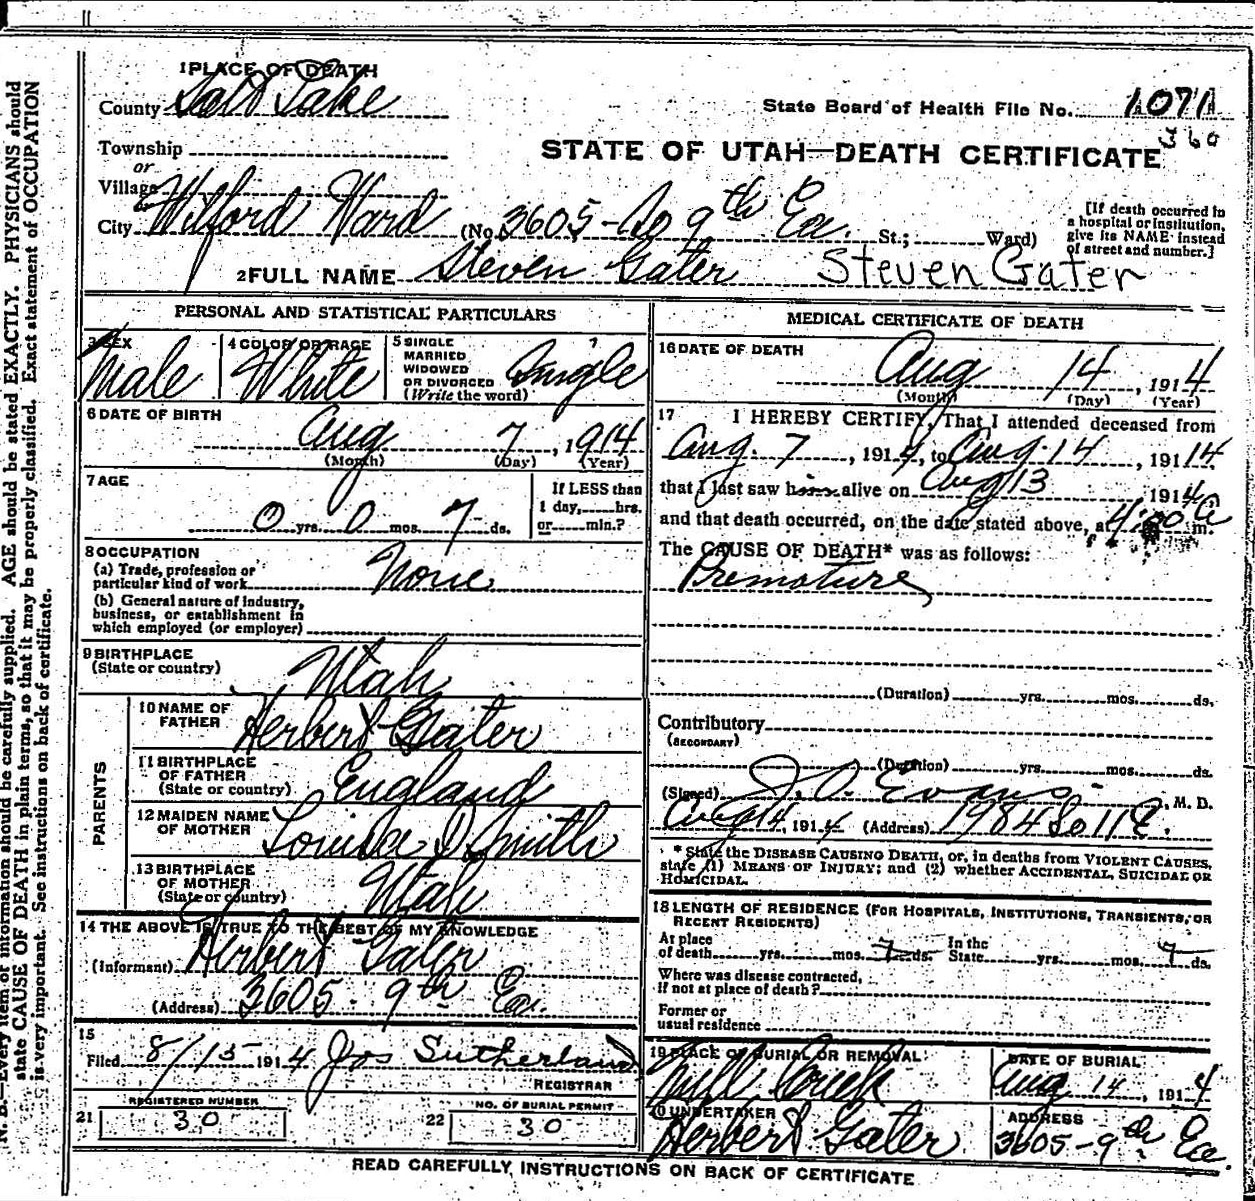 1 PLACE OF DEATH
County Salt Lake
State Board of Health File No. 1071
360
Township
or
Village
or
City Wilford Ward (No. 3605 - So 9th Ea. St.; Ward)
STATE OF UTAH—DEATH CERTIFICATE
[If death occurred in a hospital or institution, give its NAME instead of street and number.]
2 FULL NAME Steven Gater Steven Gater
PERSONAL AND STATISTICAL PARTICULARS
3 SEX Male
4 COLOR OR RACE White
5 SINGLE MARRIED WIDOWED OR DIVORCED (Write the word) Single
6 DATE OF BIRTH
Aug 7, 1914
(Month) (Day) (Year)
7 AGE
0 yrs. 0 mos. 7 ds.
If LESS than 1 day, hrs. or min.?
8 OCCUPATION
(a) Trade, profession or particular kind of work None
(b) General nature of industry, business, or establishment in which employed (or employer)
9 BIRTHPLACE
(State or country) Utah
PARENTS
10 NAME OF FATHER Herbert Gater
11 BIRTHPLACE OF FATHER (State or country) England
12 MAIDEN NAME OF MOTHER Louisa D Smith
13 BIRTHPLACE OF MOTHER (State or country) Utah
14 THE ABOVE IS TRUE TO THE BEST OF MY KNOWLEDGE
(Informant) Herbert Gater
(Address) 3605 - 9th Ea.
15
Filed 8/15 1914 Jos Sutherland
REGISTRAR
21 REGISTERED NUMBER 30
22 NO. OF BURIAL PERMIT 30
MEDICAL CERTIFICATE OF DEATH
16 DATE OF DEATH
Aug 14, 1914
(Month) (Day) (Year)
17 I HEREBY CERTIFY, That I attended deceased from
Aug. 7, 1914, to Aug. 14, 19114
that I last saw him alive on Aug 13 1914
and that death occurred, on the date stated above, at 4:00 A m.
The CAUSE OF DEATH* was as follows:
Premature
(Duration) yrs. mos. ds.
Contributory
(SECONDARY)
(Duration) yrs. mos. ds.
(Signed) J. O. Evans, M. D.
Aug 14, 1914 (Address) 1984 So 11 E.
* State the DISEASE CAUSING DEATH, or, in deaths from VIOLENT CAUSES,
state (1) MEANS OF INJURY; and (2) whether ACCIDENTAL, SUICIDAL OR
HOMICIDAL.
18 LENGTH OF RESIDENCE (FOR HOSPITALS, INSTITUTIONS, TRANSIENTS, OR
RECENT RESIDENTS)
At place of death yrs. mos. 7 ds. In the State yrs. mos. 7 ds.
Where was disease contracted, if not at place of death?
Former or usual residence
19 PLACE OF BURIAL OR REMOVAL Mill Creek
DATE OF BURIAL Aug 14, 1914
20 UNDERTAKER Herbert Gater
ADDRESS 3605 - 9th Ea.
READ CAREFULLY INSTRUCTIONS ON BACK OF CERTIFICATE
N. B.—Every item of information should be carefully supplied. AGE should be stated EXACTLY. PHYSICIANS should
state CAUSE OF DEATH in plain terms, so that it may be properly classified. Exact statement of OCCUPATION
is very important. See instructions on back of certificate.